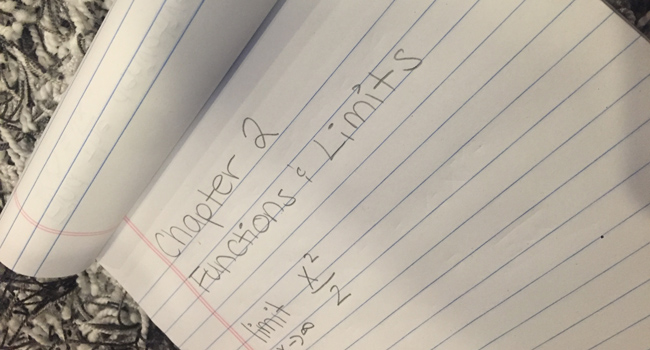 Chapter 2
Functions & Limits
limit x²/2
x→∞